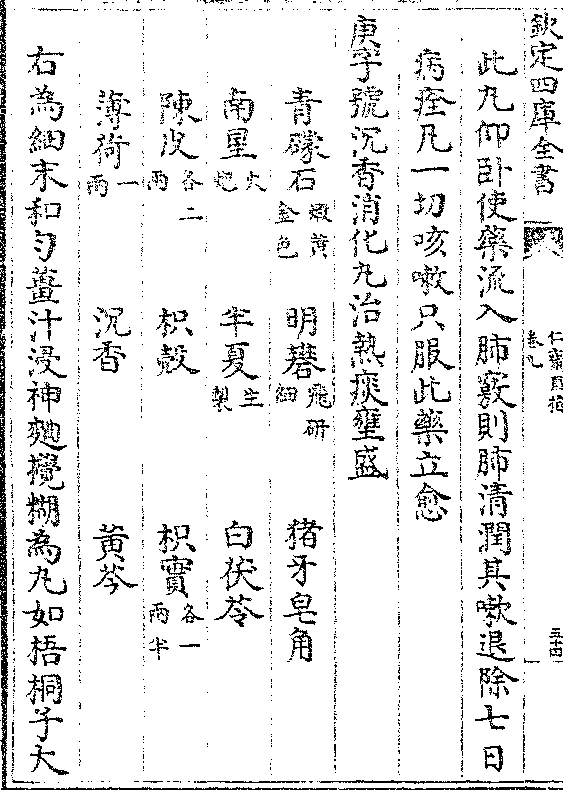 欽定四庫全書
仁齋直指
卷九
五十四
此丸仰卧使藥流入肺竅則肺清潤其嗽退除七日
病痊凡一切咳嗽只服此藥立愈
庚字號沉香消化丸治熱痰壅盛
青礞石煅黃金色 明礬飛研細 猪牙皂角
南星火炮 半夏生製 白茯苓
陳皮各二兩 枳殼 枳實各一兩半
薄荷一兩 沉香 黃芩
右為細末和勻薑汁浸神麯攪糊為丸如梧桐子大